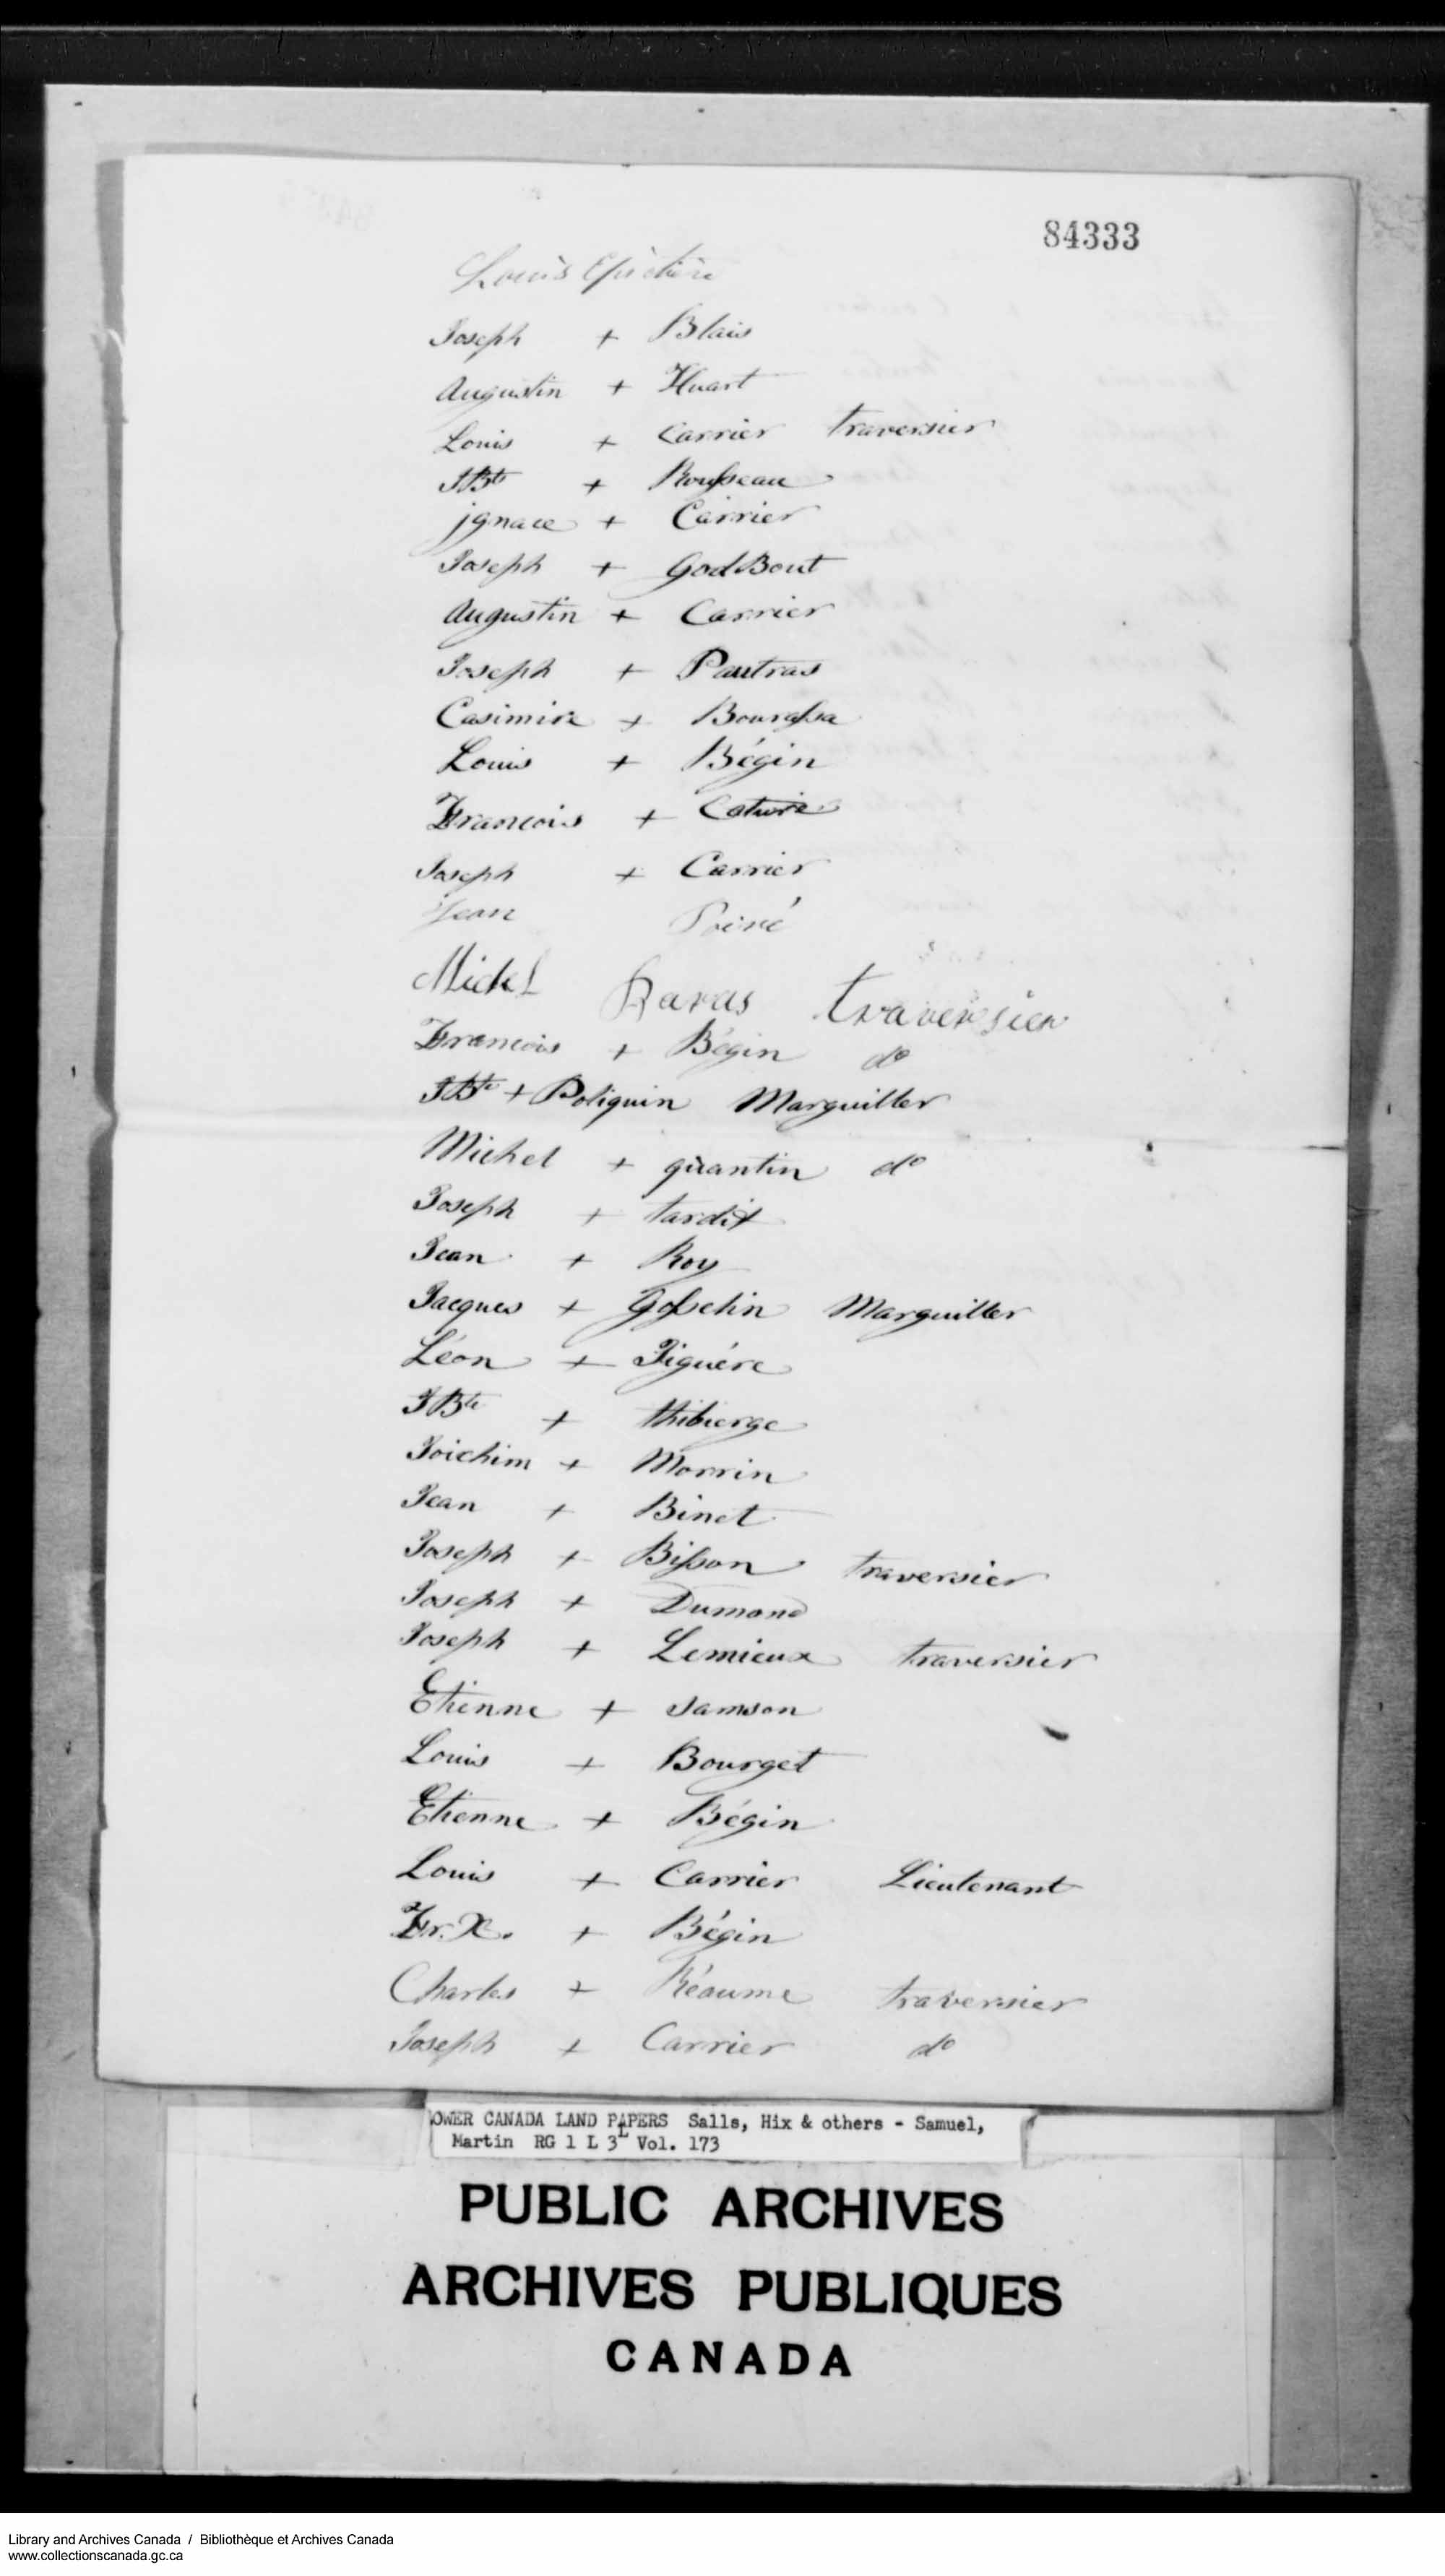 84333
Louis
Joseph + Blais
Augustin + Huart
Louis + Carrier traversier
JBte + Rousseau
jgnace + Carrier
Joseph + GodBout
Augustin + Carrier
Joseph + Pautras
Casimire + Bourassa
Louis + Bégin
Francois + Coture
Joseph + Carrier
Jean Poiré
Michel Baras traversier
Francois + Bégin do
JBte + Poliquin Marguiller
Michel + quantin do
Joseph + tardif
Jean + Roy
Jacques + Gosselin Marguiller
Léon + Figuére
JBte + thibierge
Joichim + Morrin
Jean + Binet
Joseph + Bisson traversier
Joseph + Dumond
Joseph + Lemieux traversier
Etienne + Samson
Louis + Bourget
Etienne + Bégin
Louis + Carrier Lieutenant
Fr. X. + Bégin
Charles + Réaume traversier
Joseph + Carrier do
OWER CANADA LAND PAPERS Salls, Hix & others - Samuel,
Martin RG 1 L 3L Vol. 173
PUBLIC ARCHIVES
ARCHIVES PUBLIQUES
CANADA
Library and Archives Canada / Bibliothèque et Archives Canada
www.collectionscanada.gc.ca